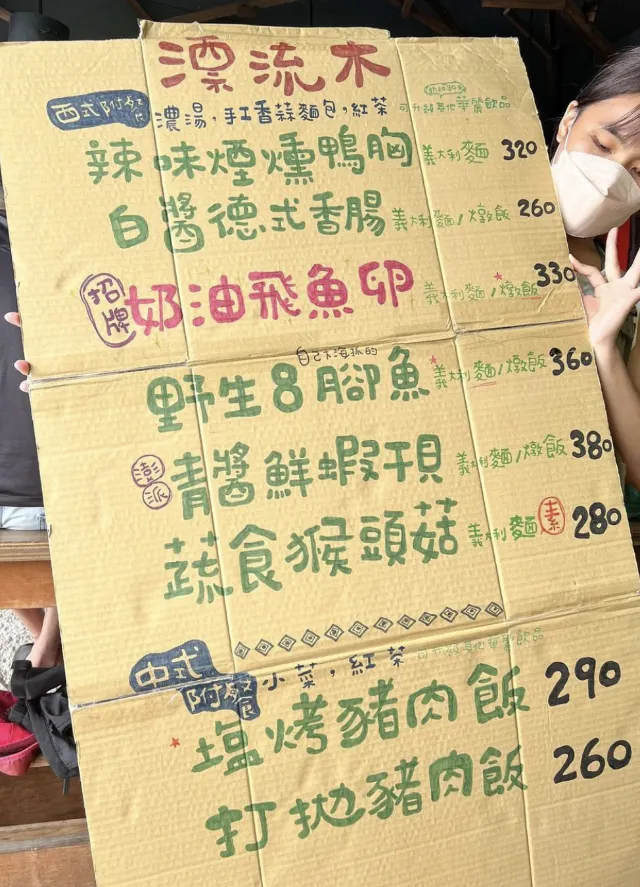 漂流木
西式附餐 濃湯,手工香蒜麵包,紅茶 可升級其他華麗飲品
辣味煙燻鴨胸 義大利麵 320
白醬德式香腸 義大利麵/燉飯 260
招牌 奶油飛魚卵 義大利麵/燉飯 330
自己下海抓的
野生8腳魚 義大利麵/燉飯 360
澎派 青醬鮮蝦干貝 義大利麵/燉飯 380
蔬食猴頭菇 義大利麵 素 280
中式附餐 小菜,紅茶 可升級其他華麗飲品
塩烤豬肉飯 290
打拋豬肉飯 260